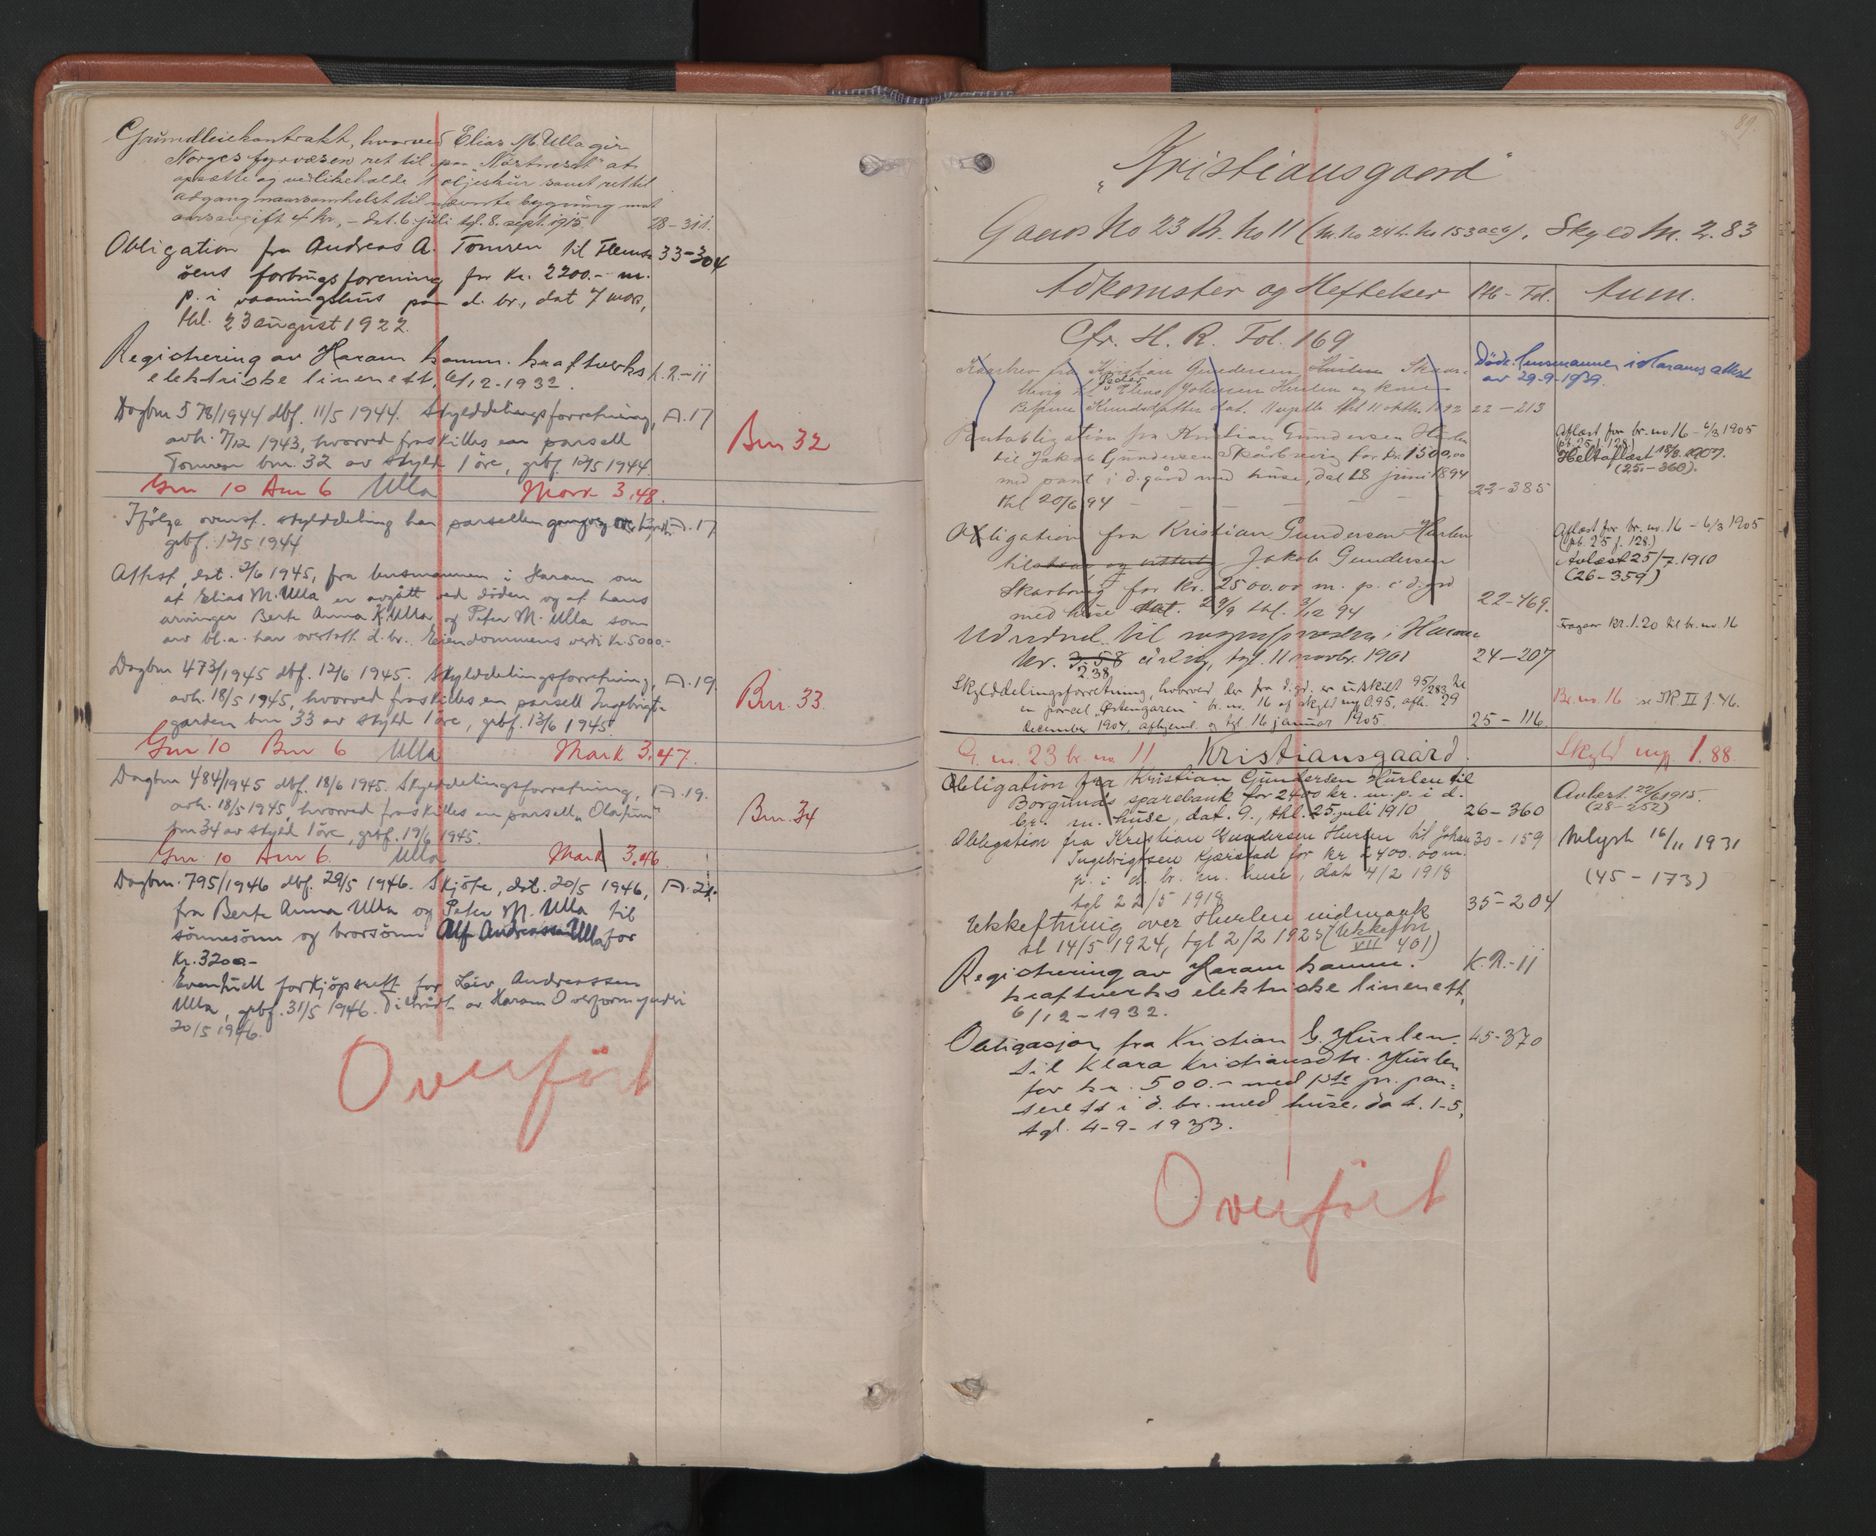 Grundleiekontrakt, hvorved Elias M. Ulla gir
Norges fyrvæsen ret til paa "Nörtneset" at
opsætte og vedlikeholde 1 oljeskur samt ret til
adgang naarsomhelst til nævnte bygning mot
aarsavgift 4 kr, - dat. 6. juli tgl. 8. sept. 1915. 28-311.
Obligation fra Andreas A. Tomren til Flemsø- 33-304
øens forbrugsforening for kr. 2200.- m.
p. i vaaningshus paa d. br., dat 7 mars,
thl. 23 august 1922.
Registrering av Haram komm. kraftverks K.R.-11
elektriske linenett, 6/12-1932.
Dagbnr 578/1944 dbf. 11/5 1944. Skylddelingsforretning, A.17
avh. 7/12 1943, hvorved fraskilles en parsell Bnr. 32
Tomren bnr. 32 av skyld 1 öre, grbf. 12/5 1944.
Gnr 10 Bnr 6 Ulla Mark 3,48.
Ifölge ovenst. skylddeling har parsellen A.17
grbf. 12/5 1944
Attest, dat. 2/6 1945, fra lensmannen i Haram om
at Elias M. Ulla er avgått ved döden og at hans
arvinger Berte Anna K. Ulla og Peter M. Ulla som
arv bl.a. har overtatt d. br. Eiendommens verdi kr. 5000.-
Dagbnr 473/1945 dbf. 12/6 1945. Skylddelingsforretning, A.19.
avh. 18/5 1945, hvorved fraskilles en parsell Ingebrigt- Bnr. 33.
garden bnr 33 av skyld 1 öre, grbf. 13/6 1945.
Gnr 10 Bnr 6 Ulla Mark 3,47.
Dagbnr 484/1945 dbf. 18/6 1945. Skylddelingsforretning, A.19.
avh. 18/5 1945, hvorved fraskilles en parsell "Olatun" Bnr. 34
bnr 34 av skyld 1 öre, grbf. 19/6 1945.
Gnr. 10 Bnr 6. Ulla Mark 3,46
Dagbnr. 795/1946 dbf. 29/5 1946. Skjöte, dat. 20/5 1946, A.21.
fra Berte Anna Ulla og Peter M. Ulla til
sönnesönn og brorsönn Alf Andreassen Ulla for
kr. 3200.-
Eventuell forkjöpsrett for Leiv Andreassen
Ulla, grbf. 31/5 1946. Tiltrådt av Haram Overformynderi
20/5 1946.
Overfört
89.
"Kristiansgaard"
Gaards No 23 Br. No 11 (M. No 24 L. No 153 a c g). Skyld M. 2.83
Adkomster og Heftelser Pb-Fol. Anm.
Cfr. H. R. Fol. 169
Kaarbrev fra Kristian Gundersen Hurlen Skaar- Döds. lensmannen i Harams attest
bövig til Peder Elias Johnsen Hurlen og kone av 29-9-1939.
Knudsdatter dat. thl 11 oktbr. 1892 22-213
Pantobligation fra Kristian Gundersen Hurlen Aflæst for br. no. 16 - 6/3 1905
til Jakob Gundersen Skarbövig for kr. 1500,00 (pb. 25 f. 128.)
med pant i d. gård med huse, dat 18 juni 1894 Helt aflæst 18/3 1907.
thl 20/6 94 22-385 (25-360).
Obligation fra Kristian Gundersen Hurlen Aflæst for br. no. 16 - 6/3 1905
til Jakob Gundersen (pb. 25 f. 128.)
Skarbövig for kr. 2500.00 m. p. i d. grd Avlæst 25/7 1910
med huse dat. 29/9 thl. 3/12 94 22-469. (26-359)
Udvidnel til i Haram Fragaar kr. 1.20 til br. no. 16
kr. 3.58 2.38 aarlig, tgl 11 novbr. 1901 24-207
Skylddelingsforretning, hvorved der fra d. gd. er udskilt 95/283 til
en parcel "Østengaren" br. no. 16 af skyld mg 0.95, afh. 29 Br. no. 16 se PR. II f. 46.
december 1904, afhjeml. og tgl 16 januar 1905. 25-116
G. no. 23 br. no. 11 Kristiansgaard. Skyld mg 1.88.
Obligation fra Kristian Gundersen Hurlen til
Borgunds sparebank for 2400 kr. m. p. i d. Avlæst 22/6 1915.
br. m. huse, dat. 9., thl. 25. juli 1910 26-360 (28-252)
Obligation fra Kristian Gundersen Hurlen til Johan 30-159 Avlyst 16/11 1931
Ingebrigtsen Kjærstad for kr 2400.00 m. (45-173)
p. i d. br. m. huse, dat 4/2 1918
tgl 22/5 1918
Utskiftning over Hurlen indmark 35-204
sl 14/5 1924, tgl 2/2 1925 (Utskiftn. VII 401)
Registrering av Haram komm. K.R.-11
kraftverks elektriske linenett,
6/12-1932.
Obligasjon fra Kristian G. Hurlen. 45-370
til Klara Kristiansdtr. Hurlen
for kr. 500.- med 1ste pr. pan-
terett i d. br. med huse, dat. 1-5,
tgl. 4-9-1933.
Overfört